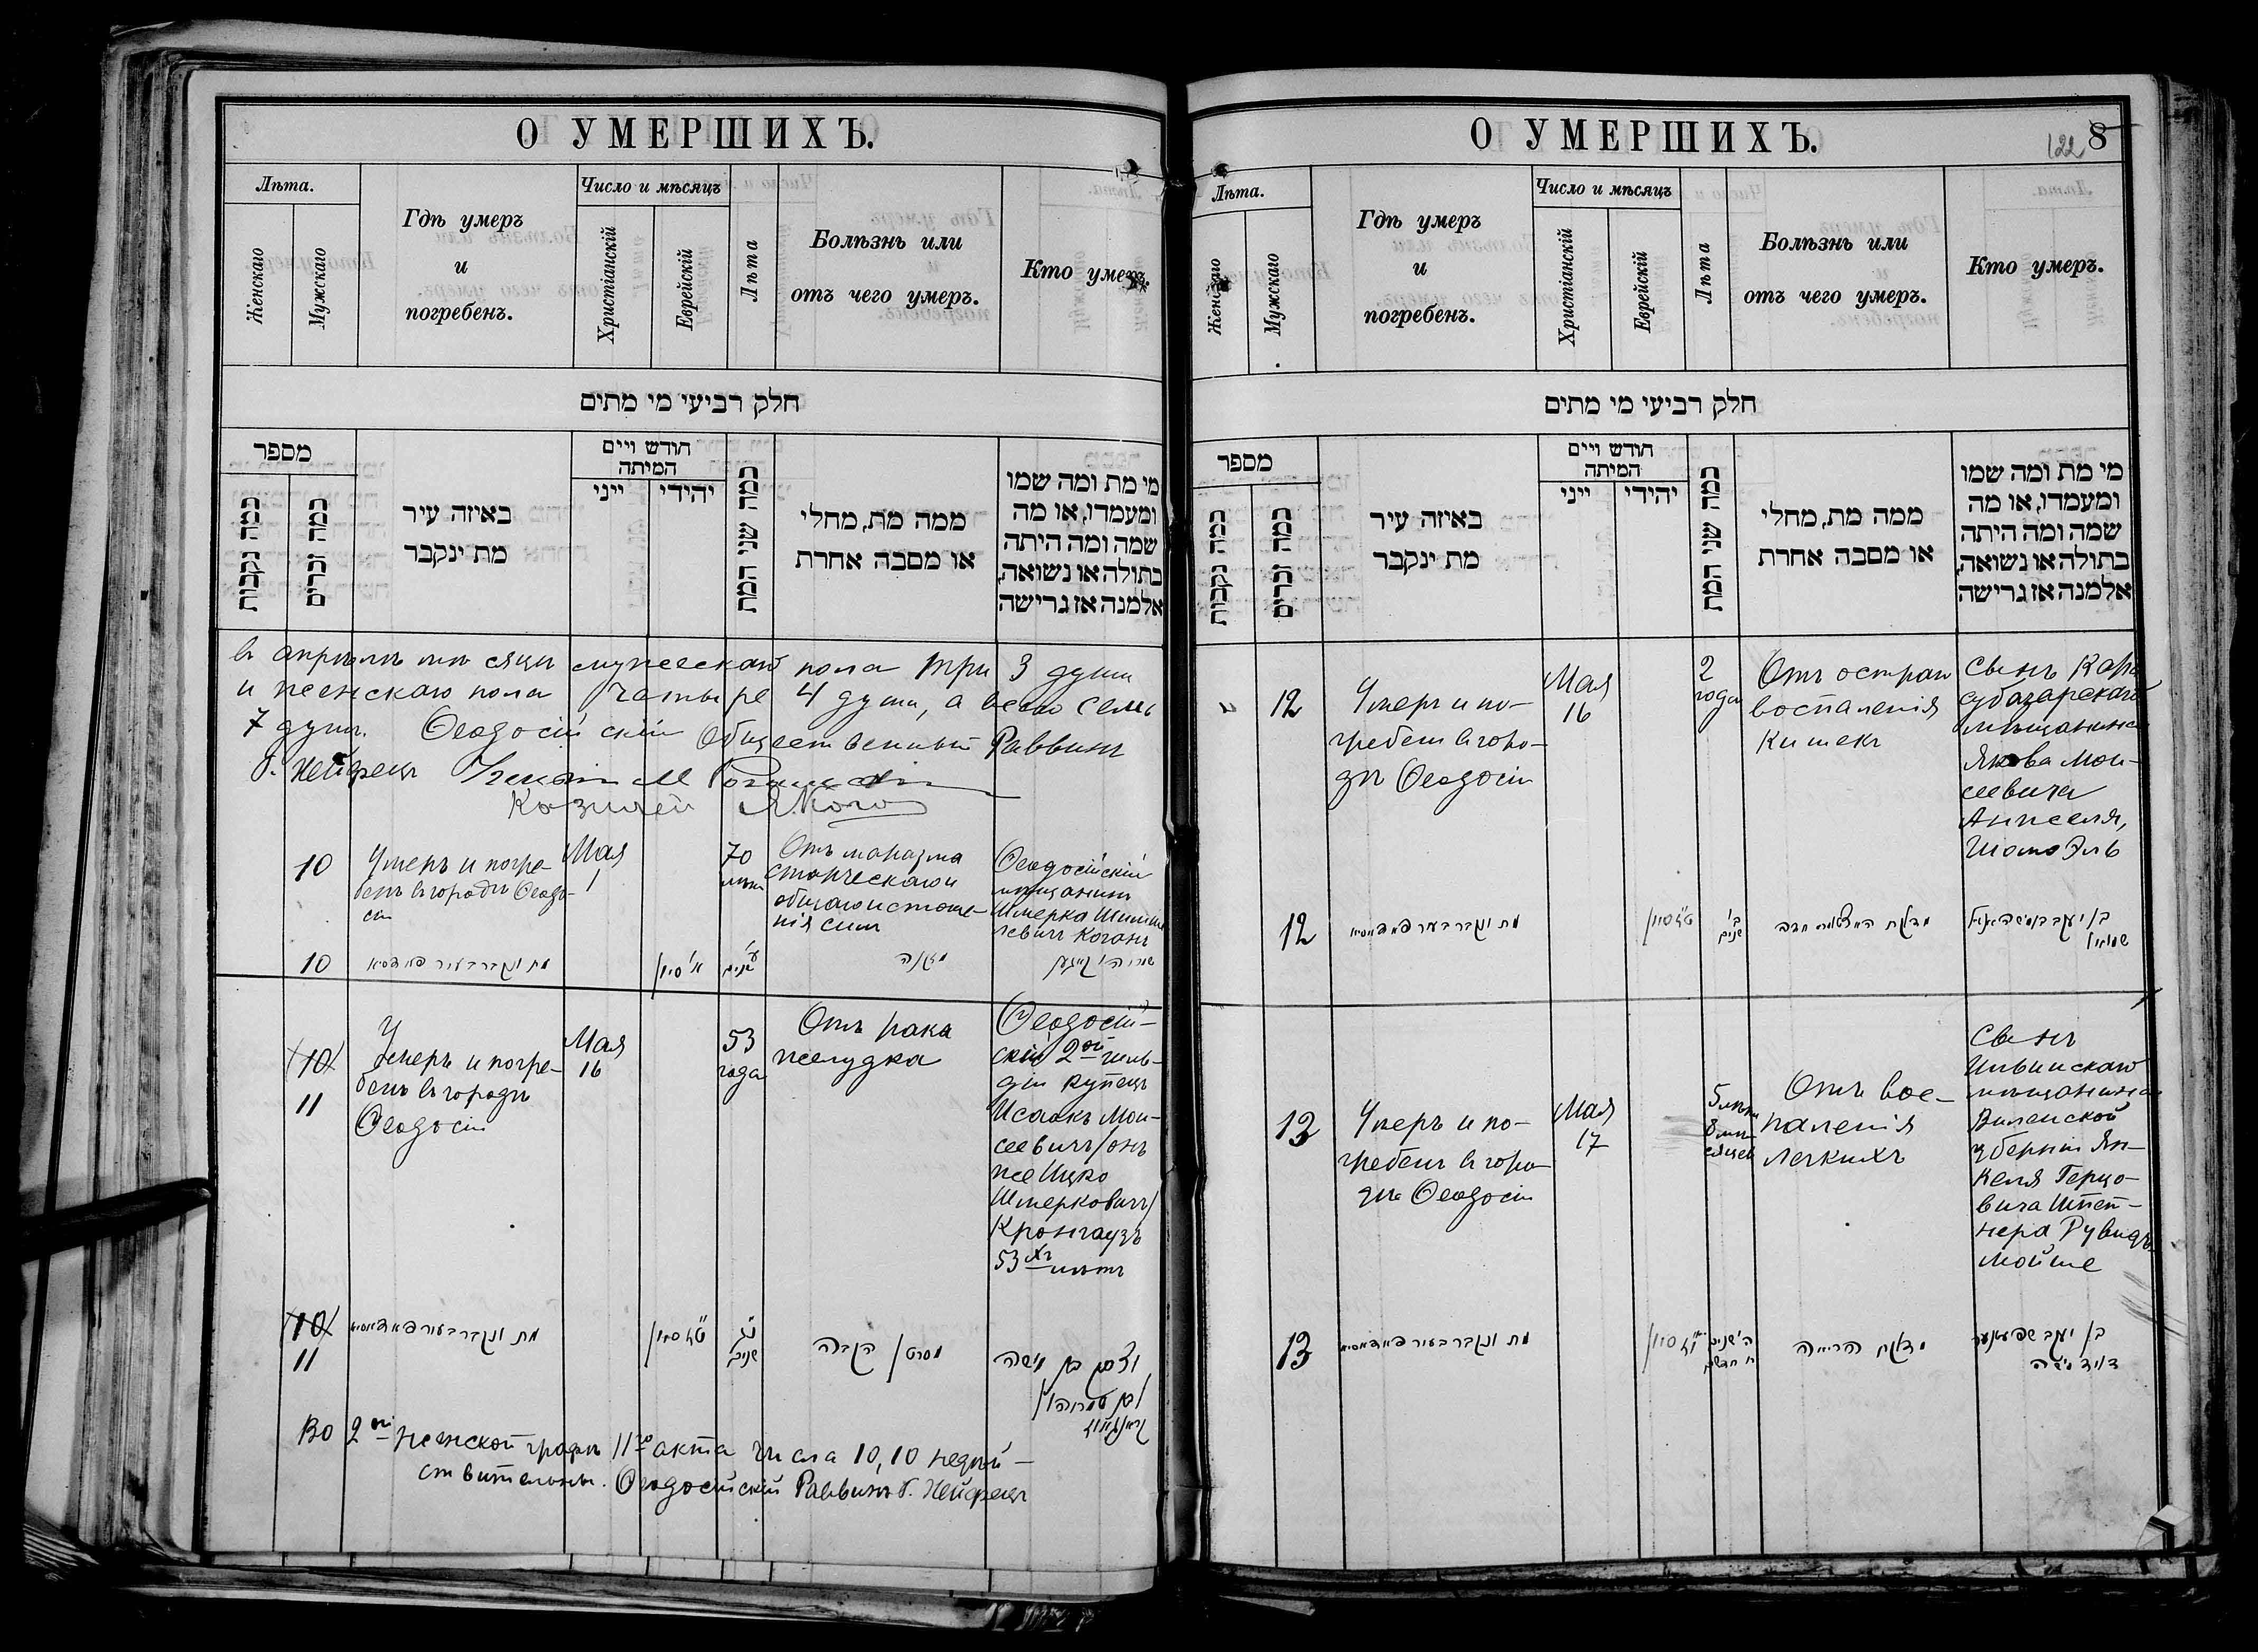 О УМЕРШИХЪ.
Лѣта.
Женскаго
Мужскаго
Гдѣ умеръ
и
погребенъ.
Число и мѣсяцъ
Христіанскій
Еврейскій
Лѣта
Болѣзнь или
отъ чего умеръ.
Кто умеръ.
חלק רביעי מי מתים
מספר
כמה נקבות
כמה זכרים
באיזה עיר
מת ינקבר
חודש ויים
המיתה
ייני
יהידי
כמה שני המת
ממה מת, מחלי
או מסבה אחרת
מי מת ומה שמו
ומעמדו, או מה
שמה ומה היתה
בתולה או נשואה,
אלמנה אז גרישה
въ апрѣлѣ мѣсяцѣ мужескаго пола три 3 души
и женскаго пола четыре 4 души, а всего семь
7 душъ. Ѳеодосійскій Общественный Раввинъ
Б. Нейфельцъ
Казначей
10
Умеръ и погре-
бенъ въ городѣ Ѳеодо-
сіи
Мая
1
70
лѣтъ
Отъ маразма
старческаго и
общаго истоще-
нія силъ
Ѳеодосійскій
мѣщанинъ
Шмерка
Коганъ
10
מת ונקבר בעיר פאדסיא
א' סיון
ע'
שנים
זקנה
10
11
Умеръ и погре-
бенъ въ городѣ
Ѳеодосіи
Мая
16
53
года
Отъ рака
желудка
Ѳеодосій-
скій 2ой гиль-
діи купецъ
Исаакъ Мои-
сеевичъ/онъ
же Ицко
Шмерковичъ/
Кронгаузъ
53хъ лѣтъ
10
11
מת ונקבר בעיר פאדאסיא
ט"ז סיון
נ"ג
שנים
הקבה
יצחק בן משה
Во 2ой женской графѣ 11го акта числа 10, 10 недѣй-
ствительны. Ѳеодосійскій Раввинъ Б. Нейфельцъ
О УМЕРШИХЪ.
122
8
Лѣта.
Женскаго
Мужскаго
Гдѣ умеръ
и
погребенъ.
Число и мѣсяцъ
Христіанскій
Еврейскій
Лѣта
Болѣзнь или
отъ чего умеръ.
Кто умеръ.
חלק רביעי מי מתים
מספר
כמה נקבות
כמה זכרים
באיזה עיר
מת ינקבר
חודש ויים
המיתה
ייני
יהידי
כמה שני המת
ממה מת, מחלי
או מסבה אחרת
מי מת ומה שמו
ומעמדו, או מה
שמה ומה היתה
בתולה או נשואה,
אלמנה אז גרישה
12
Умеръ и по-
гребенъ въ горо-
дѣ Ѳеодосіи
Мая
16
2
года
Отъ остраго
воспаленія
Кишекъ
Сынъ Кара-
субазарскаго
мѣщанина
Якова Мои-
сеевича
Анжеля,
Шамоэль
12
מת ונקבר בעיר פאדאסיא
ט"ז סיון
ב'
שנים
בן יעקב
שמואל
13
Умеръ и по-
гребенъ въ горо-
дѣ Ѳеодосіи
Мая
17
5 лѣтъ
8 мѣ-
сяцевъ
Отъ вос-
паленія
легкихъ
Сынъ
мѣщанина
Виленской
губерніи Ян-
келя Герцо-
вича Штей-
нера Рувидъ
Мойше
13
מת ונקבר בעיר פאדאסיא
י"ז סיון
ה' שנים
ח' חדשים
הריאה
בן יעקב שטיינער
דוד משה